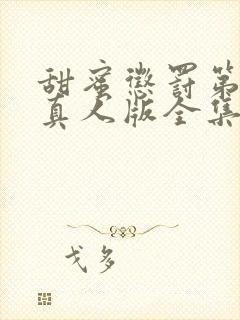 甜蜜懲罰第
真人版全集
戈多